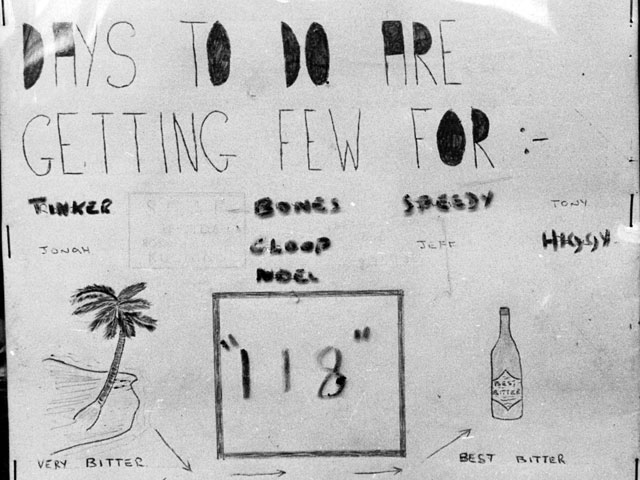 DAYS TO DO ARE
GETTING FEW FOR :-
TINKER BONES SPEEDY TONY
JONAH GLOOP JEFF
NOEL
"118"
BEST
BITTER
VERY BITTER BEST BITTER